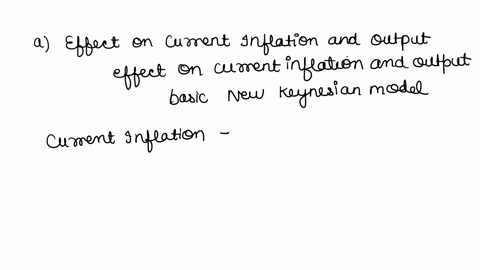 a) Effect on Current Inflation and output
effect on current inflation and output
basic New Keynesian model
Current Inflation -